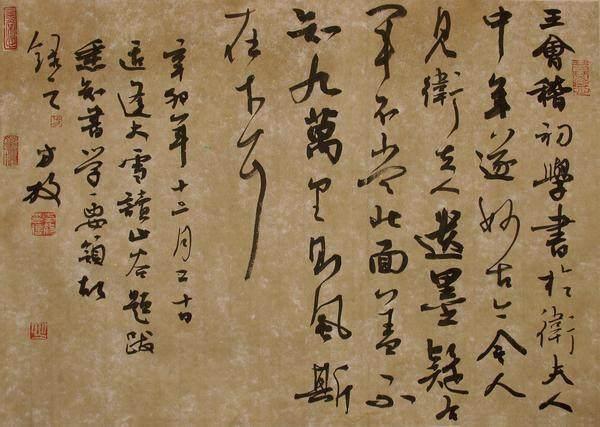 王會稽初學書於衛夫人
中年遂妙古今今人
見衛夫人遺墨疑右
軍不當北面蓋不
知九萬里則風斯
在下耳
辛卯年十二月二十日
適逢大雪讀山谷題跋
悉知書學要領故
錄之